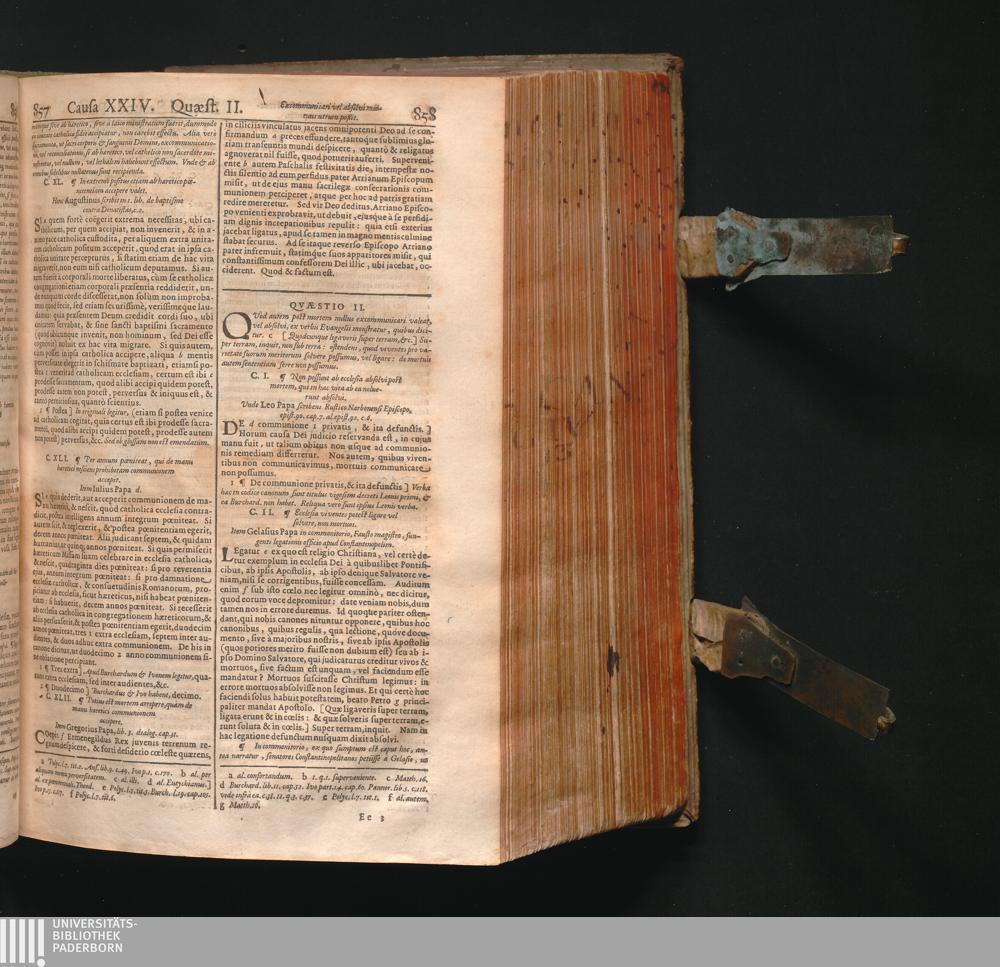 857 Causa XXIV. Quæst. II.
Excommunicari vel absolvi mor-
tuus utrum possit.
858
C. XL. ¶ In extremis positus etiam ab hæretico pœ-
nitentiam accipere valet.
Hoc Augustinus scribit in 1. lib. de baptismo
contra Donatistas, c. 2.
SI a quem fortè coëgerit extrema necessitas, ubi ca-
tholicum, per quem accipiat, non invenerit, & in a-
nimo pace catholica custodita, per aliquem extra unita-
tem catholicam positum acceperit, quod erat in ipsa ca-
tholica unitate percepturus, si statim etiam de hac vita
migraverit, non eum nisi catholicum deputamus. Si au-
tem fuerit à corporali morte liberatus, cùm se catholicæ
congregationi etiam corporali præsentia reddiderit, un-
de nunquam corde discesserat, non solùm non improba-
mus quod fecit, sed etiam securissimè, verissimeque lau-
damus: quia præsentem Deum credidit cordi suo, ubi
unitatem servabat, & sine sancti baptismi sacramento
(quod ubicunque invenit, non hominum, sed Dei esse
cognovit) noluit ex hac vita migrare. Si quis autem,
cum posset in ipsa catholica accipere, aliqua b mentis
perversitate elegerit in schismate baptizari, etiamsi po-
stea 1 venire ad catholicam ecclesiam, certum est ibi c
prodesse sacramentum, quod alibi accipi quidem potest,
prodesse autem non potest, perversus & iniquus est, &
tantò perniciosius, quantò scientius.
1 ¶ Postea ] In originali legitur, (etiam si postea venire
ad catholicam cogitat, quia certus est ibi prodesse sacra-
mentum, quod alibi accipi quidem potest, prodesse autem
non potest) perversus, &c. Sed ob glossam non est emendatum.
C. XLI. ¶ Ter annum pœniteat, qui de manu
hæretici nesciens prohibitam communionem
accepit.
Item Iulius Papa d.
SI e quis dederit, aut acceperit communionem de ma-
nu hæretici, & nescit, quod catholica ecclesia contra-
dicit, postea intelligens annum integrum pœniteat. Si
autem scit, & neglexerit, & postea pœnitentiam egerit,
decem annos pœniteat. Alii judicant septem, & quidam
humanius ut quinq; annos pœniteat. Si quis permiserit
hæreticum Missam suam celebrare in ecclesia catholica,
& nescit, quadraginta dies pœniteat: si pro reverentia
ejus, annum integrum pœniteat: si pro damnatione
ecclesiæ catholicæ, & consuetudinis Romanorum, pro-
jiciatur ab ecclesia, sicut hæreticus, nisi habeat pœniten-
tiam: si habuerit, decem annos pœniteat. Si recesserit
ab ecclesia catholica in congregationem hæreticorum, &
alios persuaserit, & postea pœnitentiam egerit, duodecim
annos pœniteat, tres 1 extra ecclesiam, septem inter au-
dientes, & duos adhuc extra communionem. De his in
canone dicitur, ut duodecimo 2 anno communionem si-
ne oblatione percipiant.
1 ¶ Tres extra ] Apud Burchardum & Ivonem legitur, qua-
tuor extra ecclesiam, sed inter audientes, &c.
2 ¶ Duodecimo ] Burchardus & Ivo habent, decimo.
C. XLII. ¶ Potius est mortem arripere, quàm de
manu hæretici communionem
accipere.
Item Gregorius Papa, lib. 3. dialog. cap. 31.
COepit f Ermenegildus Rex juvenis terrenum re-
gnum despicere, & forti desiderio cœleste quærens,
in ciliciis vinculatus jacens omnipotenti Deo ad se con-
firmandum a preces effundere, tantoque sublimius glo-
riam transeuntis mundi despicere, quantò & religatus
agnoverat nil fuisse, quod potuerit auferri. Superveni-
ente b autem Paschalis festivitatis die, intempestæ no-
ctis silentio ad eum perfidus pater Arrianum Episcopum
misit, ut de ejus manu sacrilegæ consecrationis com-
munionem perciperet, atque per hoc ad patris gratiam
redire mereretur. Sed vir Deo deditus, Arriano Episco-
po venienti exprobravit, ut debuit, ejusque à se perfidi-
am dignis increpationibus repulit: quia etsi exterius
jacebat ligatus, apud se tamen in magno mentis culmine
stabat securus. Ad se itaque reverso Episcopo Arriano
pater infremuit, statimque suos apparitores misit, qui
constantissimum confessorem Dei illic, ubi jacebat, oc-
ciderent. Quod & factum est.
QVÆSTIO II.
QUòd autem post mortem nullus excommunicari valeat,
vel absolvi, ex verbis Evangelii monstratur, quibus dici-
tur. c [ Quodcunque ligaveris super terram, &c.] Su-
per terram, inquit, non sub terra: ostendens, quod viventes pro va-
rietate suorum meritorum solvere possumus, vel ligare: de mortuis
autem sententiam ferre non possumus.
C. I. ¶ Non possunt ab ecclesia absolvi post
mortem, qui in hac vita ab ea nolue-
runt absolvi.
Unde Leo Papa scribens Rustico Narbonensi Episcopo,
epist. 90. cap. 7. al. epist. 92. c. 6.
DE d communione 1 privatis, & ita defunctis. ]
Horum causa Dei judicio reservanda est, in cujus
manu fuit, ut talium obitus non usque ad communio-
nis remedium differretur. Nos autem, quibus viven-
tibus non communicavimus, mortuis communicare
non possumus.
1 ¶ De communione privatis, & ita defunctis ] Verba
hæc in codice canonum sunt titulus vigesimi decreti Leonis primi, &
ea Burchard. non habet. Reliqua verò sunt ipsius Leonis verba.
C. II. ¶ Ecclesia viventes potest ligare vel
solvere, non mortuos.
Item Gelasius Papa in commonitorio, Fausto magistro, fun-
genti legationis officio apud Constantinopolim.
LEgatur e ex quo est religio Christiana, vel certè de-
tur exemplum in ecclesia Dei à quibuslibet Pontifi-
cibus, ab ipsis Apostolis, ab ipso denique Salvatore ve-
niam, nisi se corrigentibus, fuisse concessam. Auditum
enim f sub isto cœlo nec legitur omninò, nec dicitur,
quod eorum voce depromitur: date veniam nobis, dum
tamen nos in errore duremus. Id quoque pariter osten-
dant, qui nobis canones nituntur opponere, quibus hoc
canonibus, quibus regulis, qua lectione, quóve docu-
mento, sive à majoribus nostris, sive ab ipsis Apostolis
(quos potiores meritò fuisse non dubium est) seu ab i-
pso Domino Salvatore, qui judicaturus creditur vivos &
mortuos, sive factum est unquam, vel faciendum esse
mandatur? Mortuos suscitasse Christum legimus: in
errore mortuos absolvisse non legimus. Et qui certè hoc
faciendi solus habuit potestatem, beato Petro g princi-
paliter mandat Apostolo. [Quæ ligaveris super terram,
ligata erunt & in cœlis: & quæ solveris super terram, e-
runt soluta & in cœlis.] Super terram, inquit. Nam in
hac legatione defunctum nusquam dixit absolvi.
¶ In commonitorio, ex quo sumptum est caput hoc, an-
tea narratur, senatores Constantinopolitanos petiisse à Gelasio, ut
a al. confortandum. b 1. q. 1. superveniente. c Matth. 16.
d Burchard. lib. 11. cap. 52. Ivo part. 14. cap. 60. Pannor. lib. 5. c. 118.
vide infrà ea. c. 36. 11. q. 3. c. 37. e Polyc. l. 7. tit. 1. f al. autem.
g Matth. 16.
Ee 3
UNIVERSITÄTS-
BIBLIOTHEK
PADERBORN